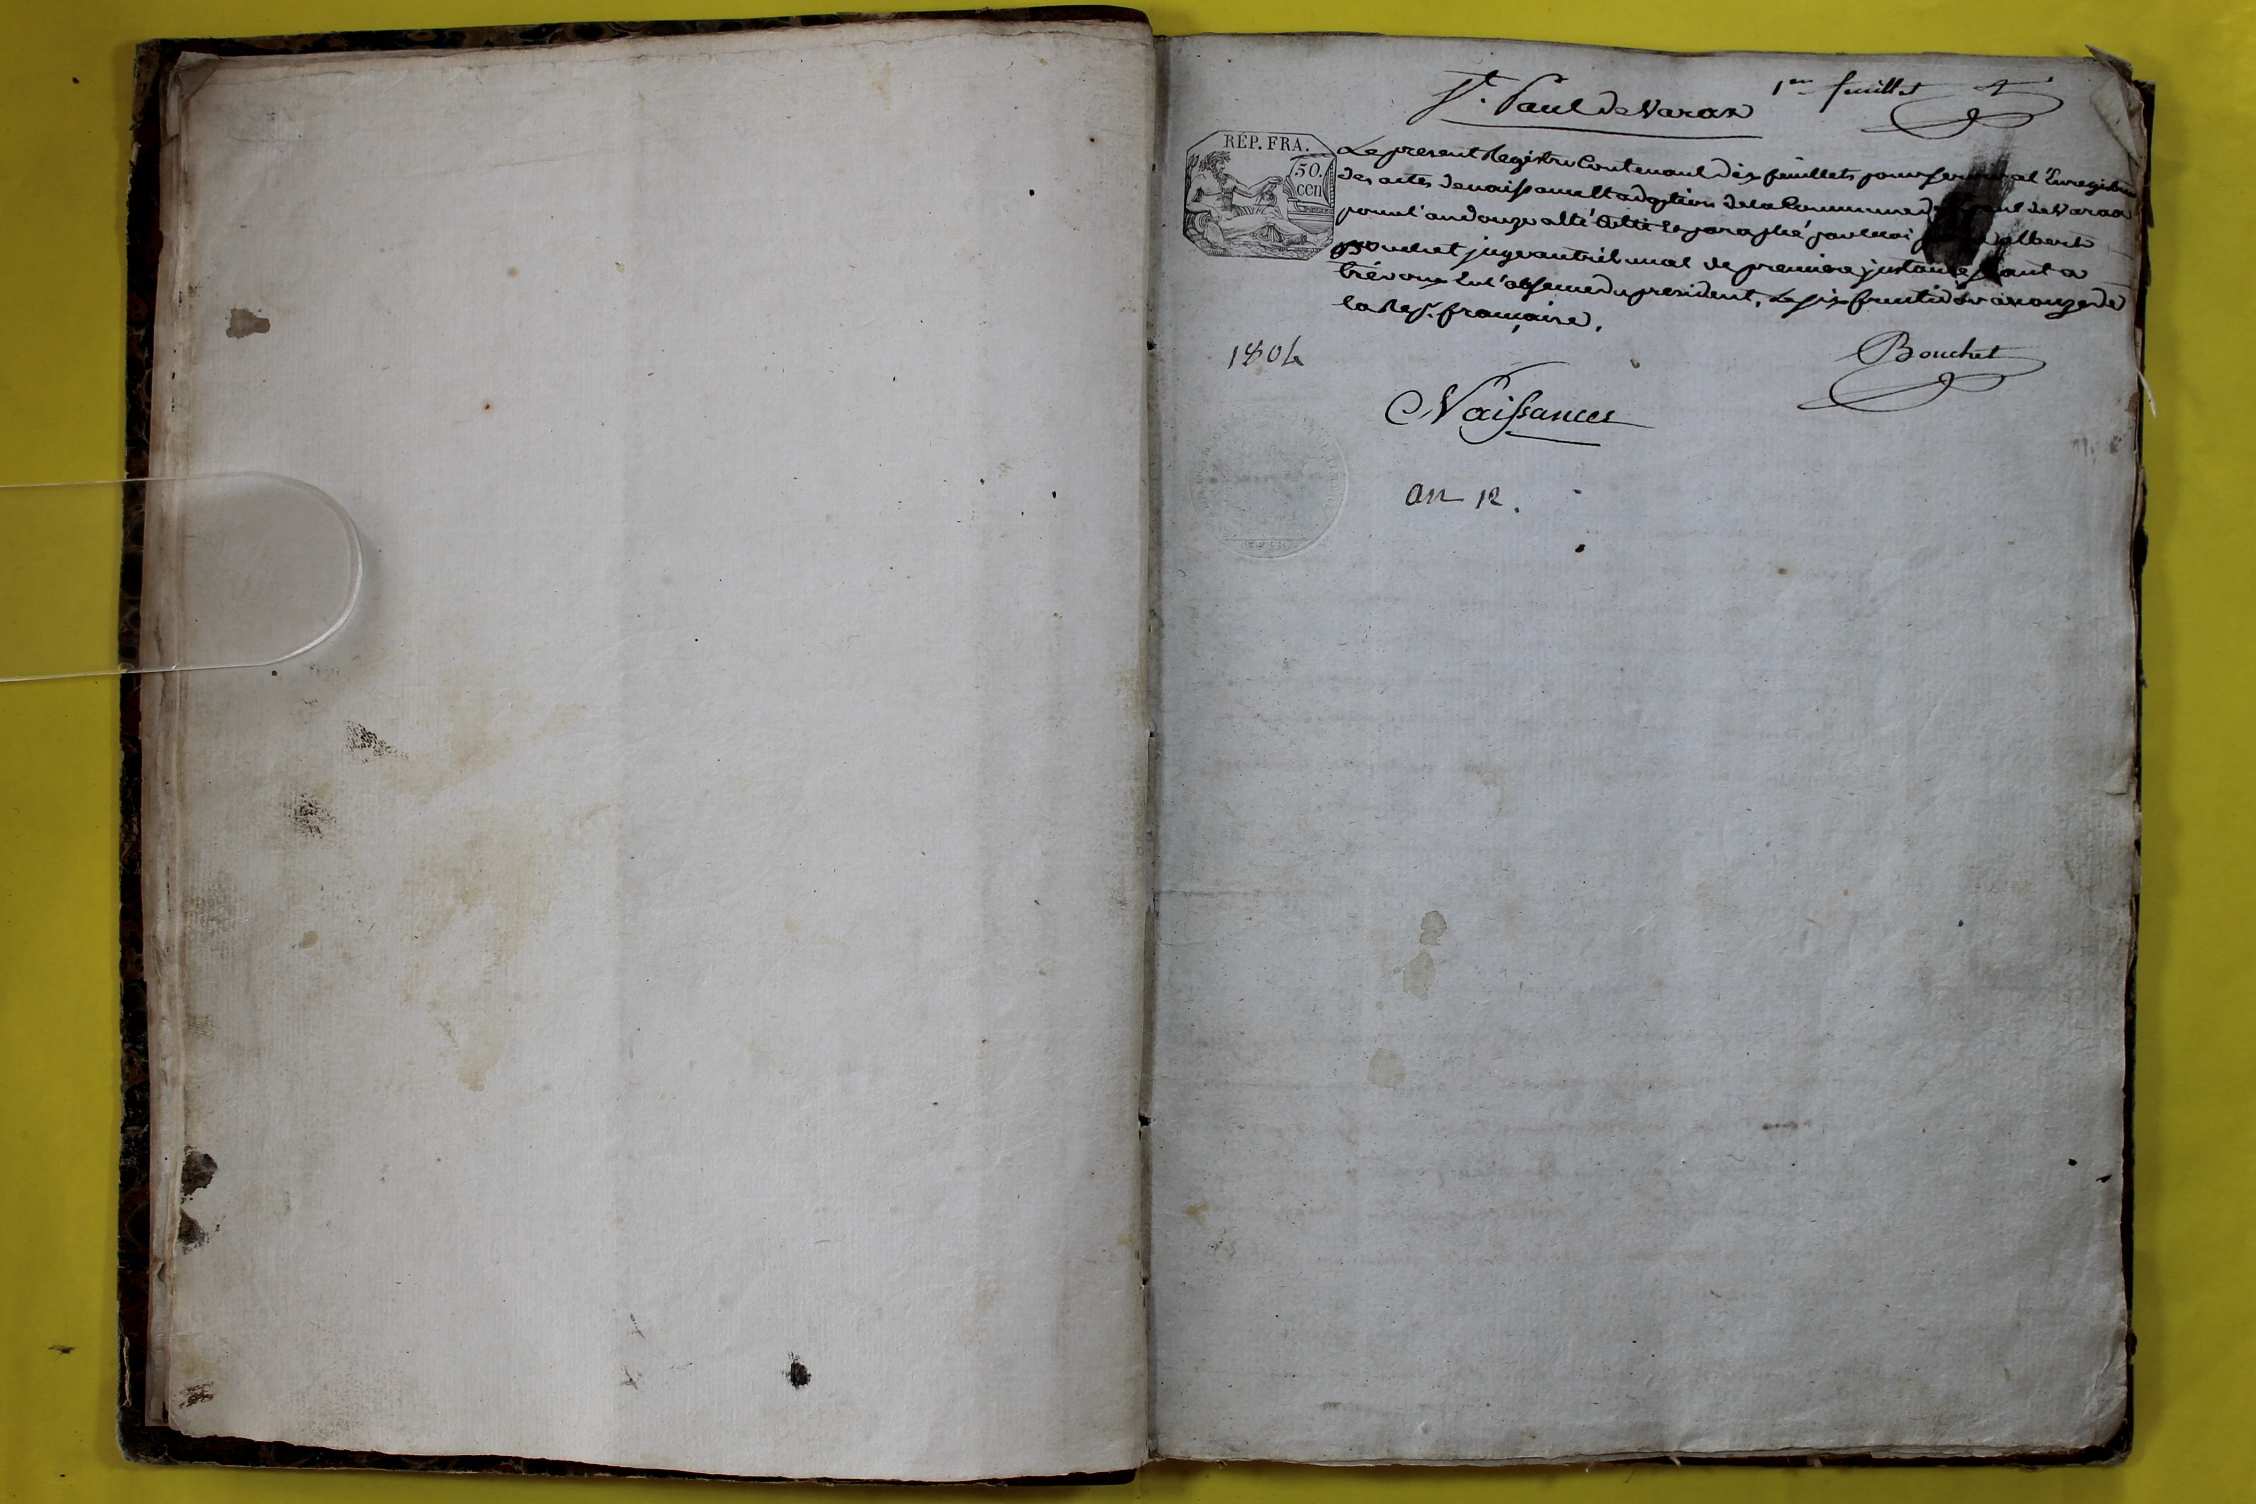 St. Paul de Varax
1er feuillet
RÉP. FRA.
50.
cen
Le present Registre Contenant dix feuillets pour servir a l'Enregistre
des actes de naissance et adoption de la Commune de Paul de Varax
pour l'an douze a été Cotté et paraphé par moi albert
Bouchet juge au tribunal de premiere instance séant a
trévoux En l'absence du president, Le six fructidor an onze de
la Rep. française.
1804
Bouchet
Naissances
an 12.